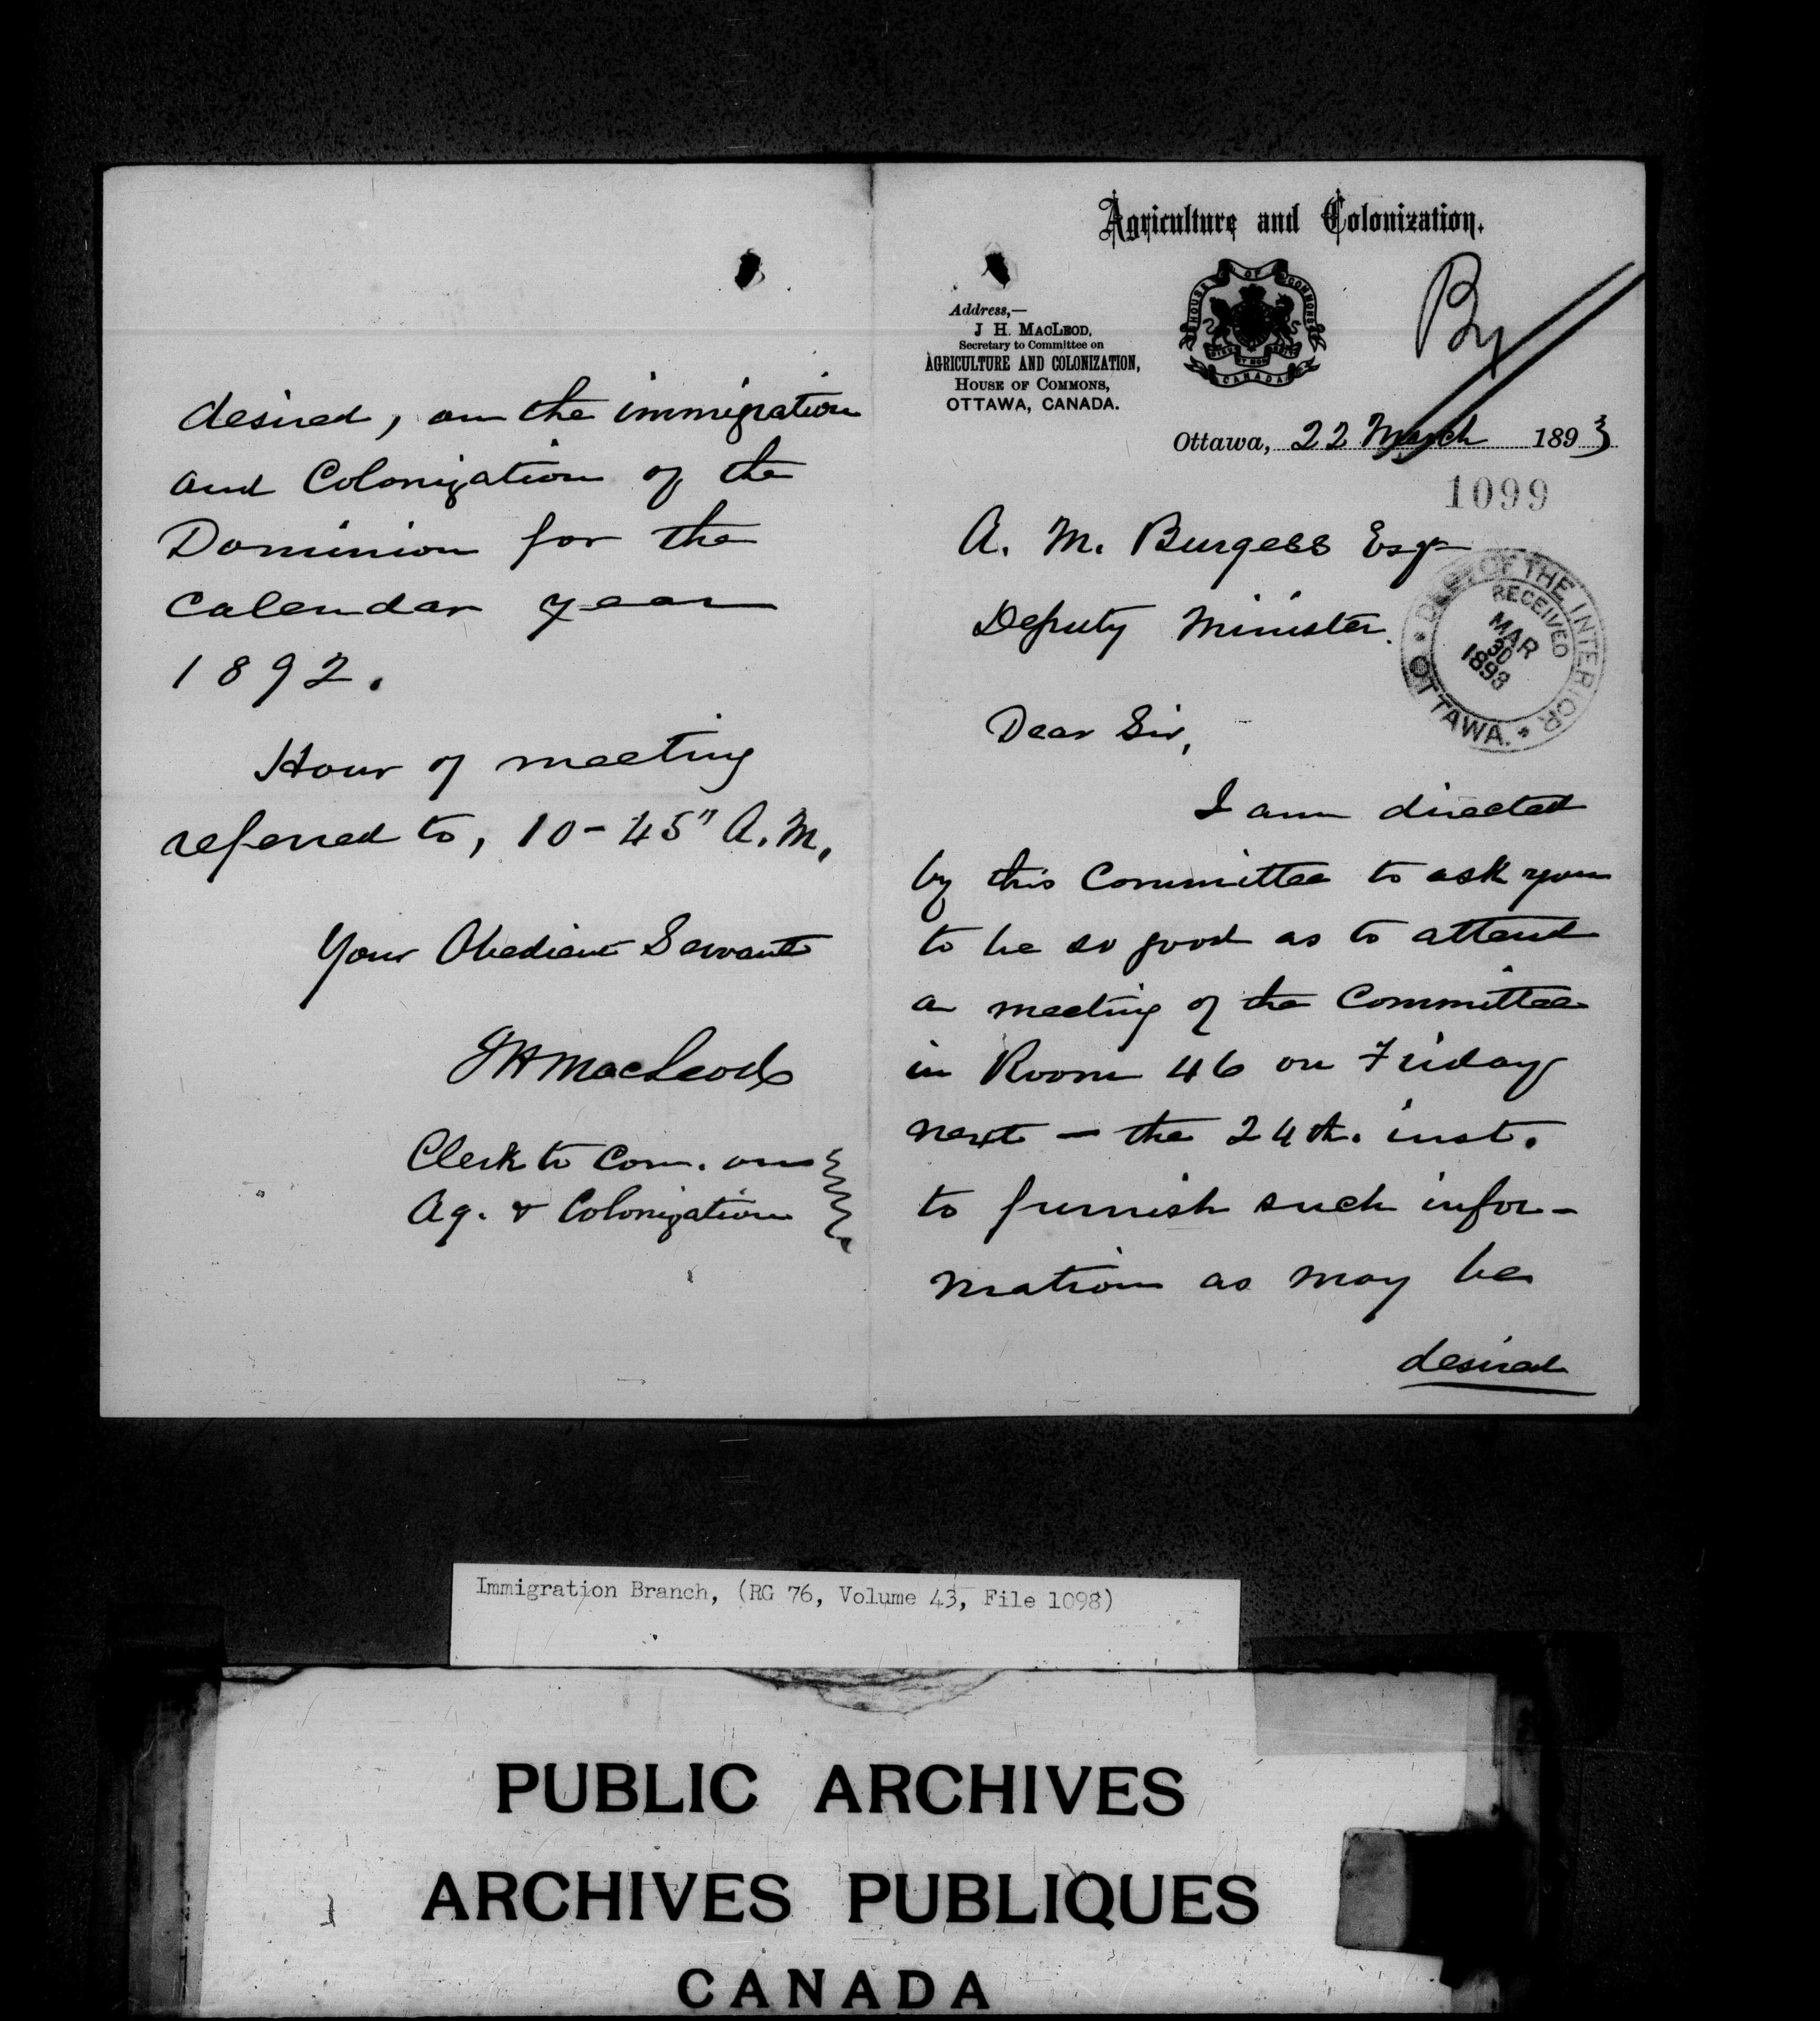 Agriculture and Colonization.
Address,—
J. H. MACLEOD,
Secretary to Committee on
AGRICULTURE AND COLONIZATION,
HOUSE OF COMMONS,
OTTAWA, CANADA.
HOUSE OF COMMONS
CANADA
By
Ottawa, 22 March 1893
1099
A. M. Burgess Esqr
Deputy Minister.
DEPT. OF THE INTERIOR
RECEIVED
MAR
30
1893
OTTAWA.
Dear Sir,
I am directed
by this Committee to ask you
to be so good as to attend
a meeting of the Committee
in Room 46 on Friday
next — the 24th. inst.
to furnish such infor-
mation as may be
desired
desired, on the immigration
and Colonization of the
Dominion for the
Calendar year
1892.
Hour of meeting
referred to, 10-45" A.M.
Your Obedient Servant
J H MacLeod
Clerk to Com. on
Ag. & Colonization
Immigration Branch, (RG 76, Volume 43, File 1098)
PUBLIC ARCHIVES
ARCHIVES PUBLIQUES
CANADA